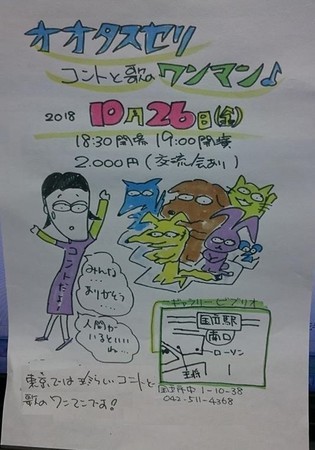 オオタスセリ
コントと歌のワンマン♪
2018 10月26日(金)
18:30開場 19:00開演
2.000円(交流会あり)
コントだよー
みんな…
ありがそう…
人間が
いるといい
ね…
ギャラリービブリオ
国立駅
南口
ローソン
東京では珍らしいコントと
歌のワンマンです!
1-10-38
042-511-4368